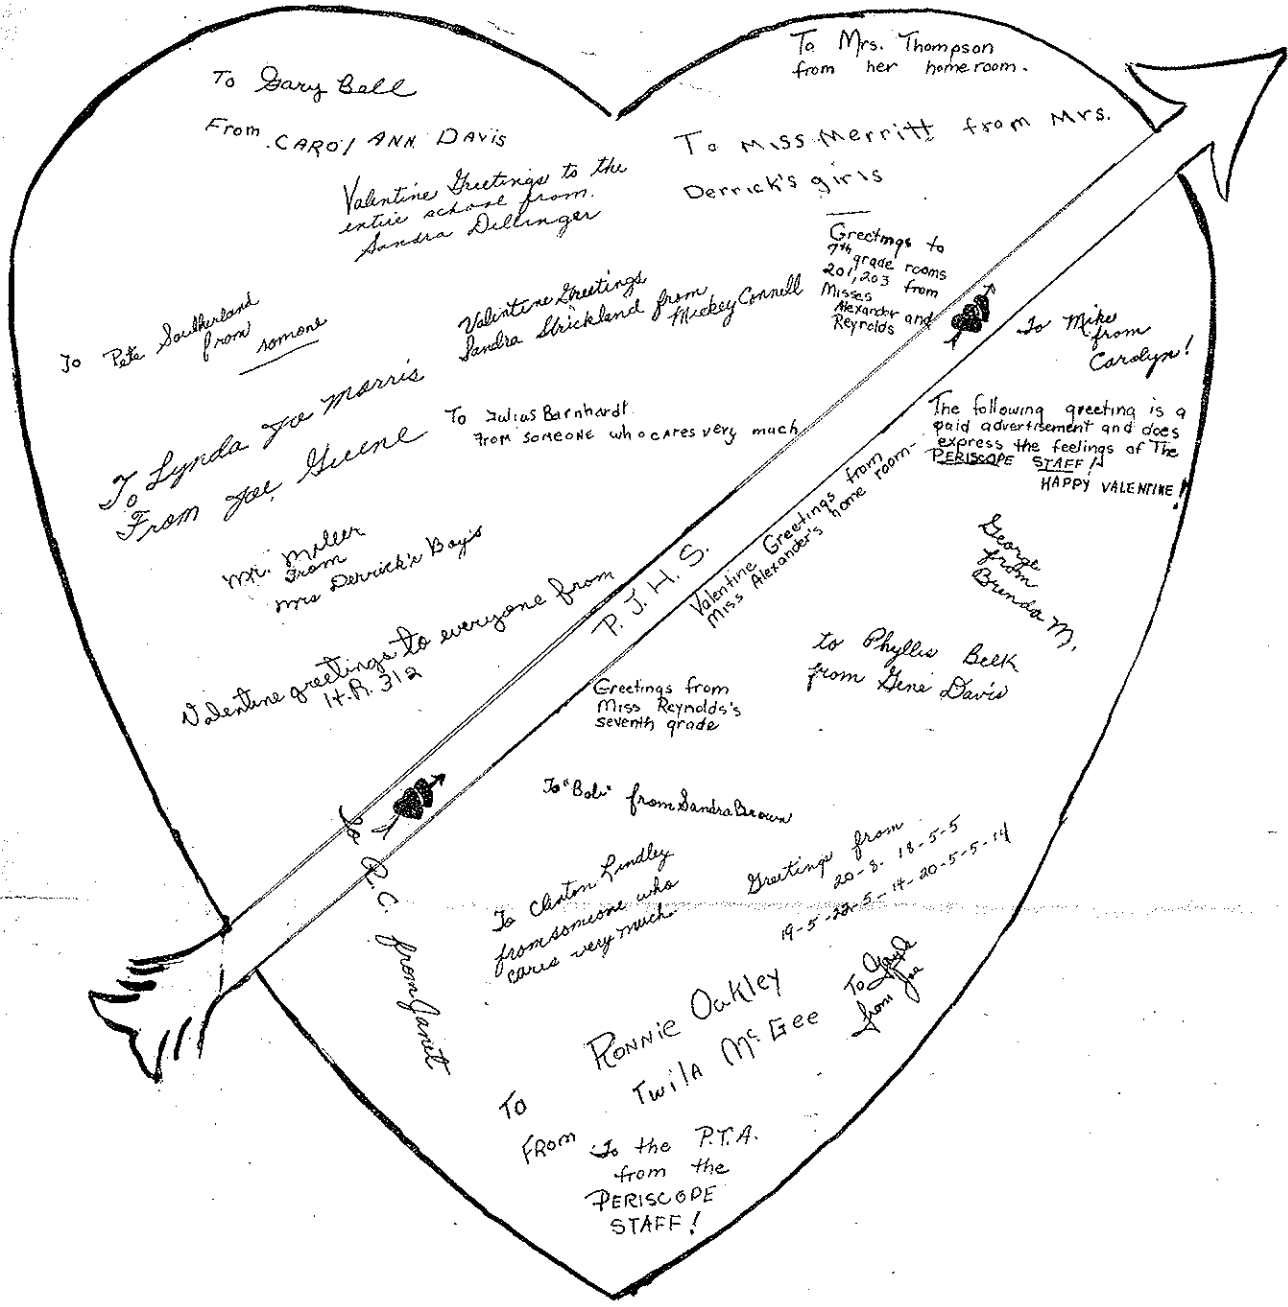 To Gary Ball
From CAROL ANN DAVIS
To Mrs. Thompson
from her homeroom.
To Miss Merritt from Mrs.
Derrick's girls
Valentine Greetings to the
entire school from.
Sandra Dellinger
Greetings to
7th
grade rooms
201, 203 from
Misses
Alexander and
Reynolds
To Pete Southerland
from somone
Valentine Greetings
Sandra Strickland from
Mickey Connell
To Mike
from
Carolyn!
To Lynda Joe Morris
From Joe Greene
To Julius Barnhardt
From someone who cares very much
The following greeting is a
paid advertisement and does
express the feelings of The
PERISCOPE STAFF!
HAPPY VALENTINE!
Mr. Miller
From
Mrs Derrick's Boys
Valentine Greetings from
Miss Alexander's home room-
George
from
Brenda M.
P. J. H. S.
Valentine greetings to everyone from
H.R. 312
to Phyllis Belk
from Gene Davis
Greetings from
Miss Reynolds's
seventh grade
To "Bob" from Sandra Brown
To R.C. from Janet
To Clinton Lindley
from someone who
cares very much
Greetings from
20-8- 18-5-5
19-5-22-5-14-20-5-5-14
To Gayle
from Joe
To Ronnie Oakley
From Twila McGee
To the P.T.A.
from the
PERISCOPE
STAFF!